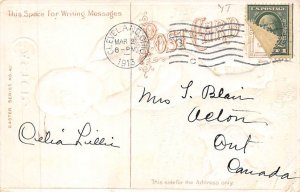 YT
This Space for Writing Messages
POST CARD
CLEVELAND, OHIO
MAR 2
6-PM
1913
C
U.S. POSTAGE
Mrs T. Blair
Acton
Ont
Canada
Celia Lillie
EASTER SERIES NO.
This side for the Address only.